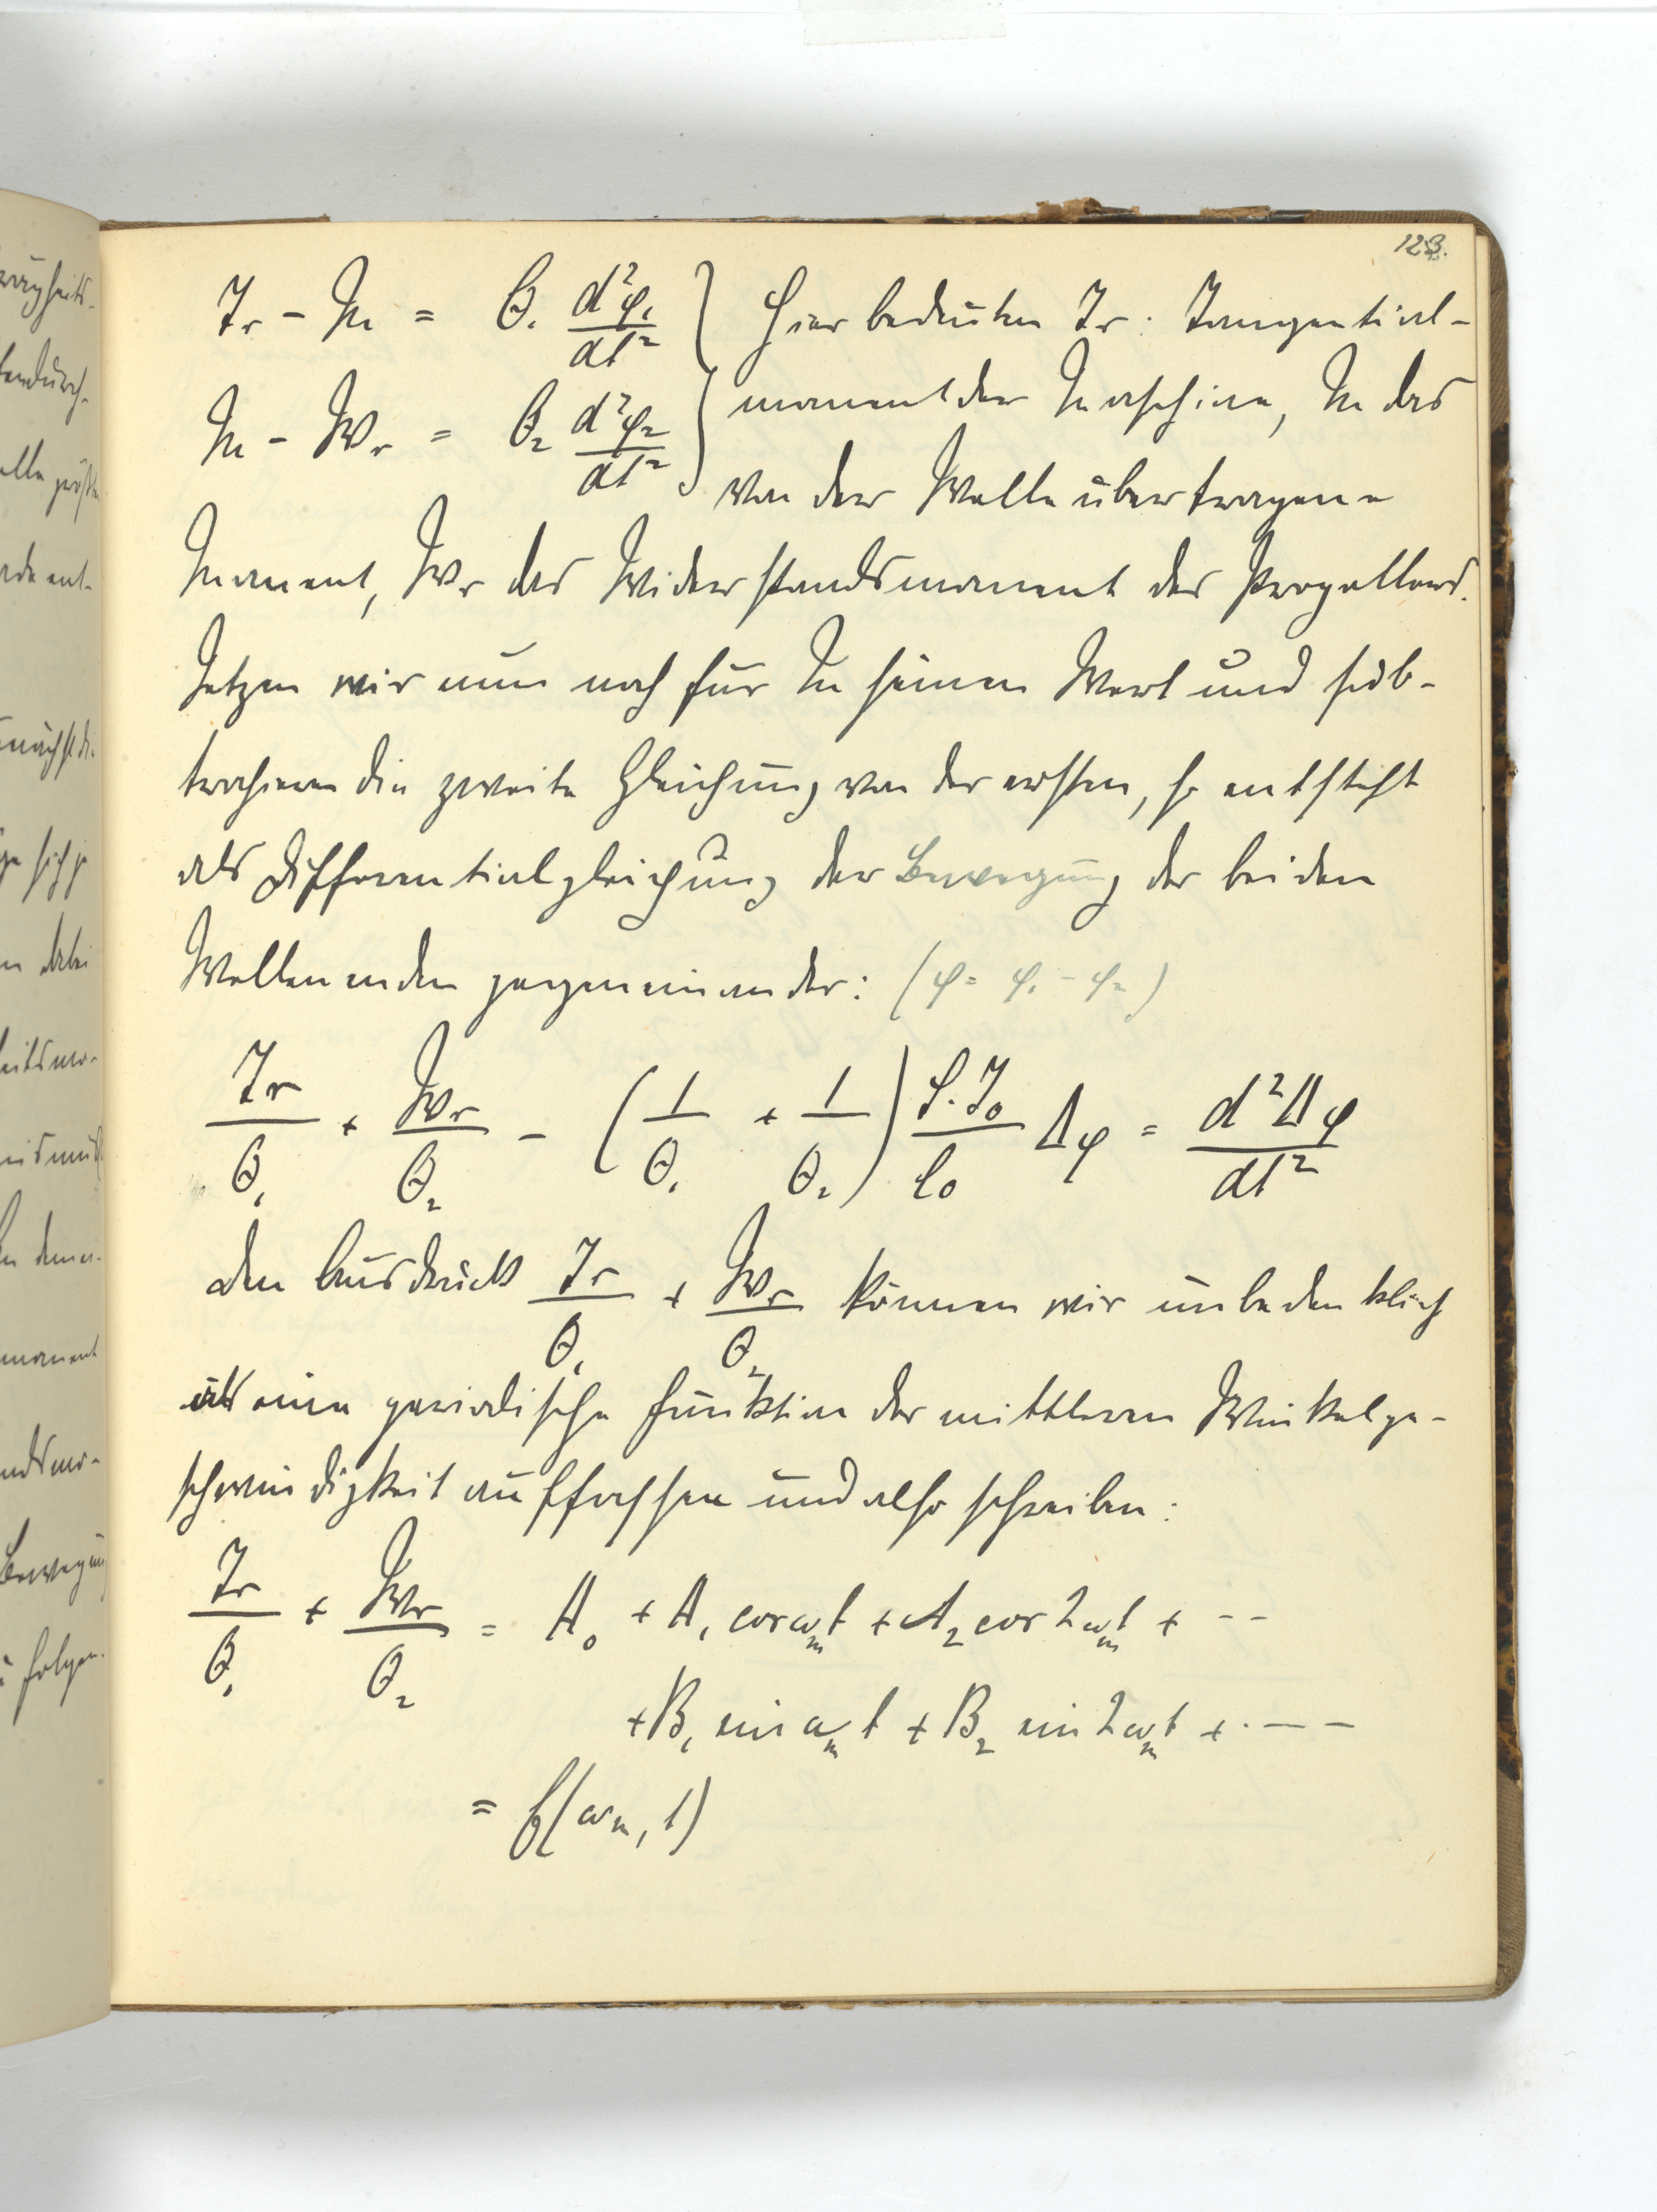 123.
Tr - M = Θ₁ d²φ₁/dt² } Hier bedeuten Tr: Tangential-
moment der Maschine, M das
M - Wr = Θ₂ d²φ₂/dt² }
von der Welle übertragene
Moment, Wr das Widerstandsmoment des Propellers.
Setzen wir nun noch für M seinen Wert und sub-
trahieren die zweite Gleichung von der ersten, so entsteht
als Differentialgleichung der Bewegung der beiden
Wellenenden gegeneinander: (φ = φ₁ - φ₂)
Tr/Θ₁ + Wr/Θ₂ - (1/Θ₁ + 1/Θ₂) G·J₀/l₀ Δφ = d²Δφ/dt²
den Ausdruck Tr/Θ₁ + Wr/Θ₂ können wir unbedenklich
als eine periodische Funktion der mittleren Winkelge-
schwindigkeit auffassen und also schreiben:
Tr/Θ₁ + Wr/Θ₂ = A₀ + A₁ cos ωₘt + A₂ cos 2ωₘt + --
+ B₁ sin ωₘt + B₂ sin 2ωₘt + ·--
= f(ωₘ, t)